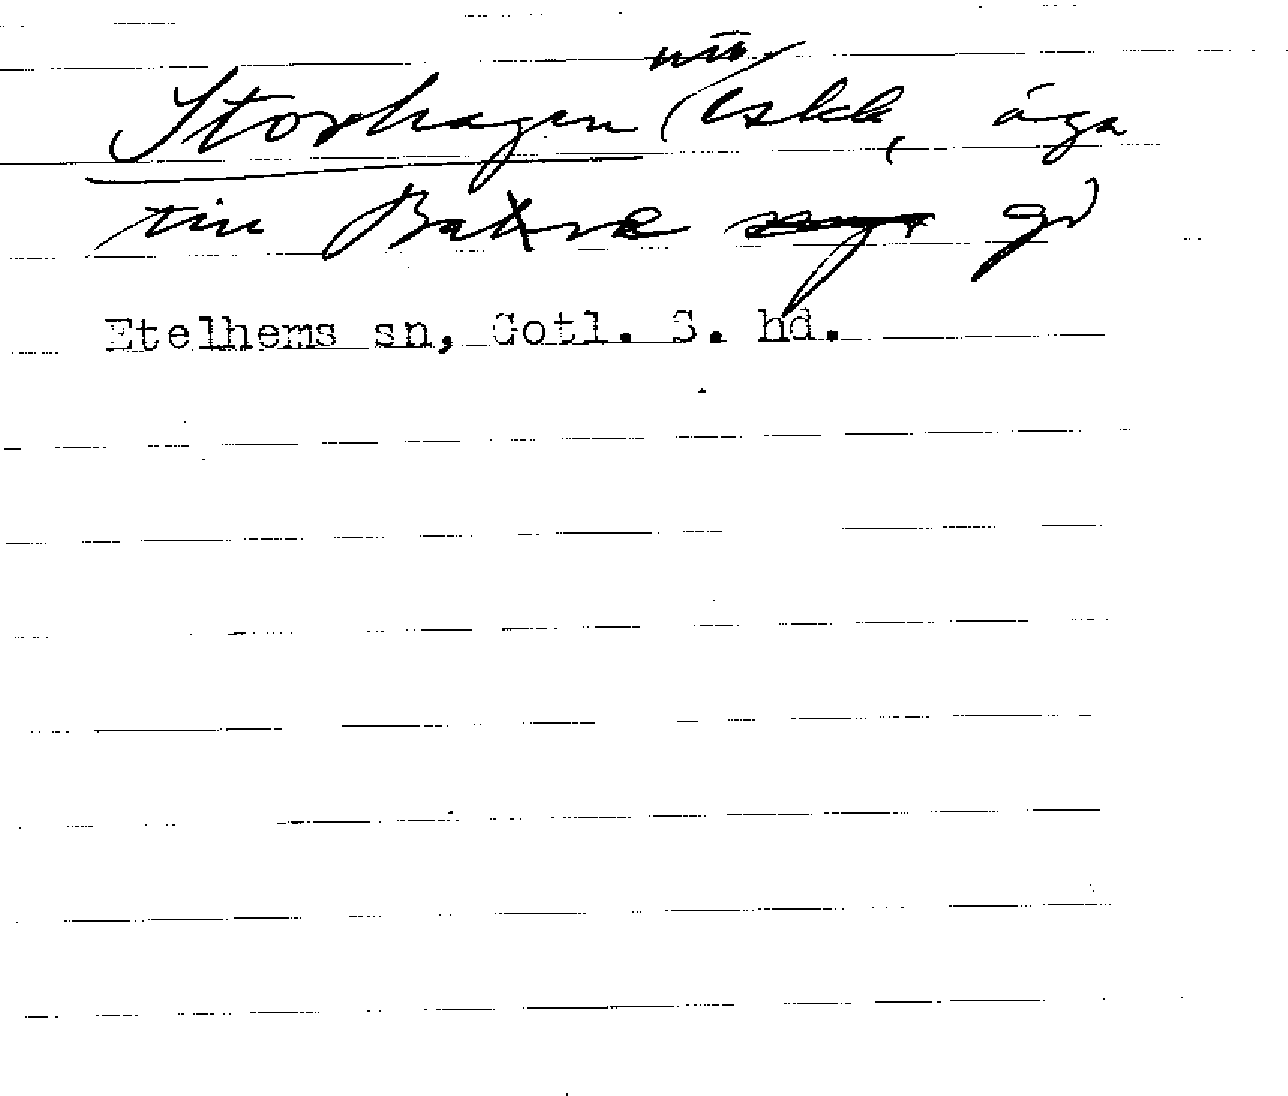 Storhagen nu eskk, äga
till Bakve gd
Etelhems sn, Gotl. S. hd.